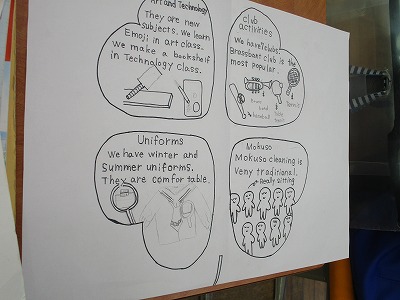 Art and Technology
They are new
subjects. We learn
Emoji in art class.
We make a Bookshelf
in Technology class.
Club
activities
We have 7 clubs.
Brassband club is the
most popular.
Brass
band
Tennis
baseball
Uniforms
We have winter and
Summer uniforms.
They are comfortable.
Mokuso
Mokuso cleaning is
Veny traditional.
Really sitting